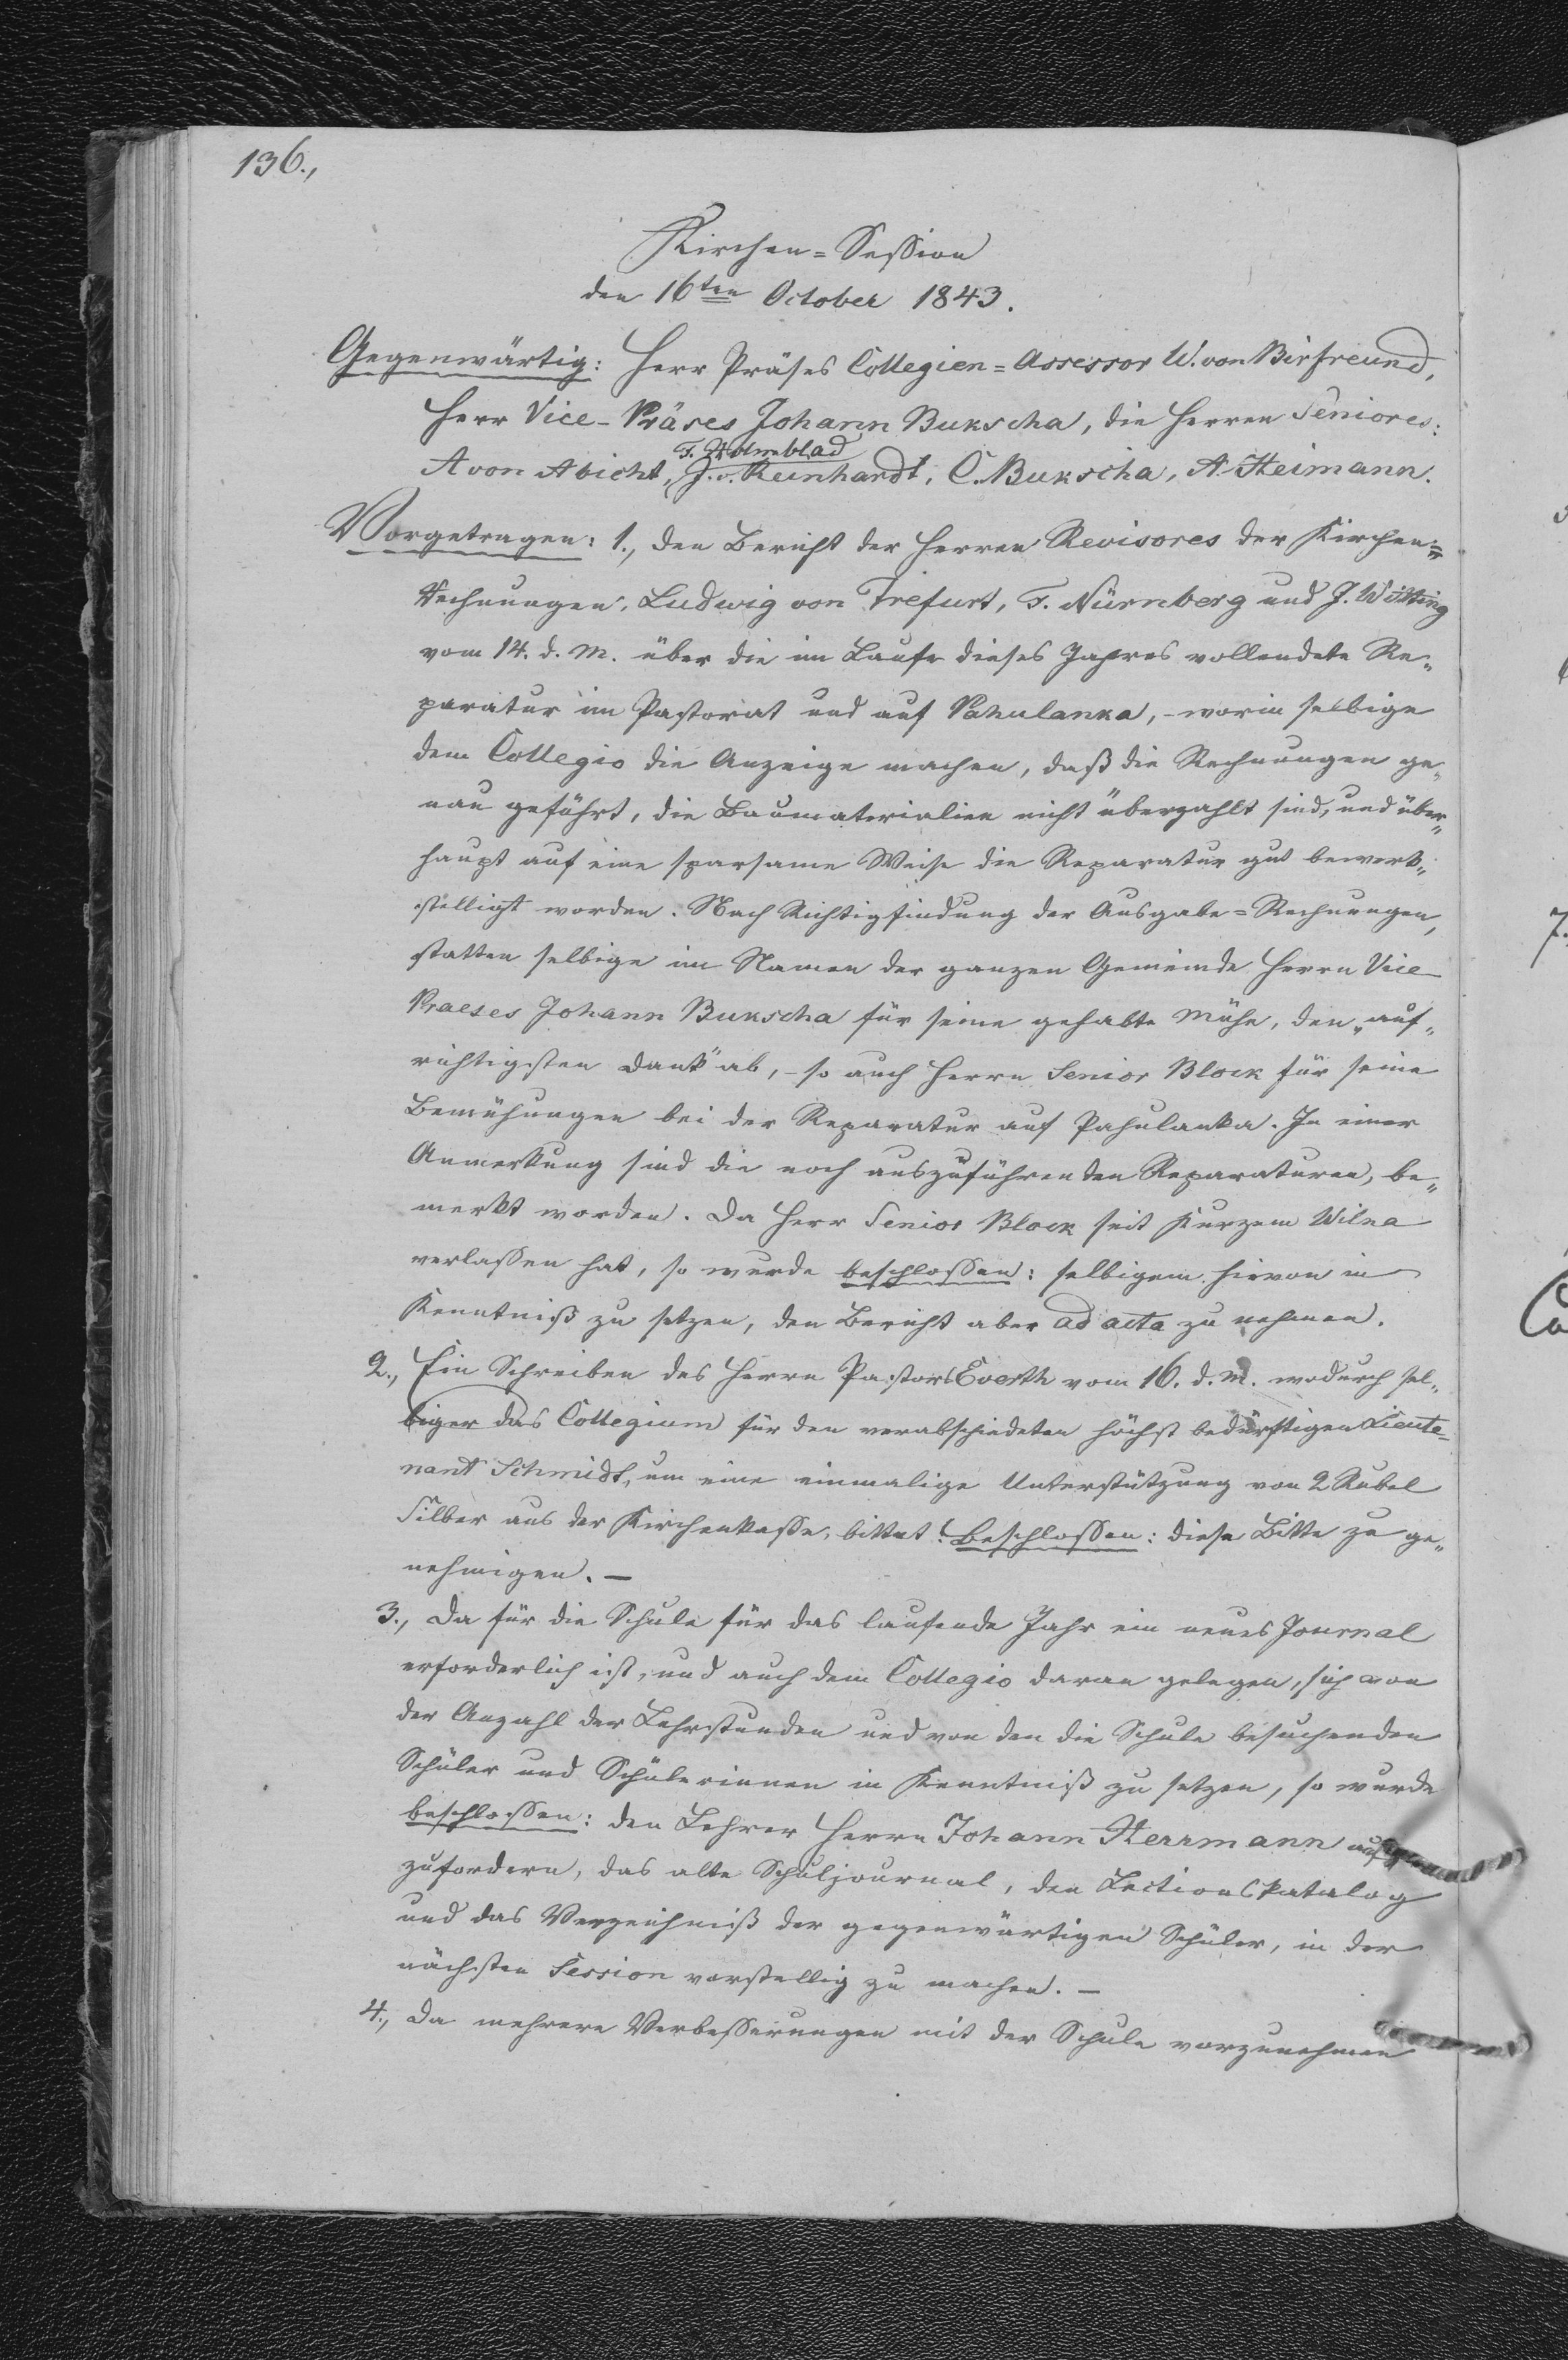 136.,
Kirchen=Session
den 16ten October 1843.
Gegenwärtig: Herr Präses Collegien=Assessor W. von Birfreund,
Herr Vice-Präses Johann Bukscha, die Herren Seniores:
F. Holmblad
A von Abicht, J. v. Reinhardt, C. Bukscha, A. Heimann.
Vorgetragen: 1., den Bericht der Herren Revisores der Kirchen=
Rechnungen, Ludwig von Trefurt, F. Nürnberg und J. Witting
vom 14. d. M. über die im Laufe dieses Jahres vollendete Re„
paratur im Pastorat und auf Pohulanka, - worin selbige
dem Collegio die Anzeige machen, daß die Rechnungen ge„
nau geführt, die Baumaterialien nicht überzahlt sind, und über„
haupt auf eine sparsame Weise die Reparatur gut bewerk„
stelligt worden. Nach Richtigfindung der Ausgabe=Rechnungen,
statten selbige im Namen der ganzen Gemeinde Herrn Vice
Praeses Johann Bukscha für seine gehabte Mühe, den „auf„
richtigsten Dank" ab, - so auch Herrn Senior Block für seine
Bemühungen bei der Reparatur auf Pohulanka. In einer
Anmerkung sind die noch auszuführenden Reparaturen, be„
merkt worden. Da Herr Senior Block seit Kurzem Wilna
verlassen hat, so wurde beschlossen: selbigem hievon in
Kenntniß zu setzen, den Bericht aber ad acta zu nehmen.
2., Ein Schreiben des Herrn Pastors Everth vom 16. d. M. wodurch sel„
biger das Collegium für den verabschiedeten höchst bedürftigen Lieute=
nant Schmidt, um eine einmalige Unterstützung von 2 Rubel
Silber aus der Kirchenkasse, bittet: Beschlossen: diese Bitte zu ge„
nehmigen. —
3., Da für die Schule für das laufende Jahr ein neues Journal
erforderlich ist, und auch dem Collegio daran gelegen, sich von
der Anzahl der Lehrstunden und von den die Schule besuchenden
Schüler und Schülerinnen in Kenntniß zu setzen, so wurde
beschlossen: den Lehrer Herrn Johann Herrmann auf
zufordern, das alte Schuljournal, den Lectionskatalog
und das Verzeichniß der gegenwärtigen Schüler, in der
nächsten Session vorstellig zu machen. —
4., Da mehrere Verbesserungen mit der Schule vorzunehmen